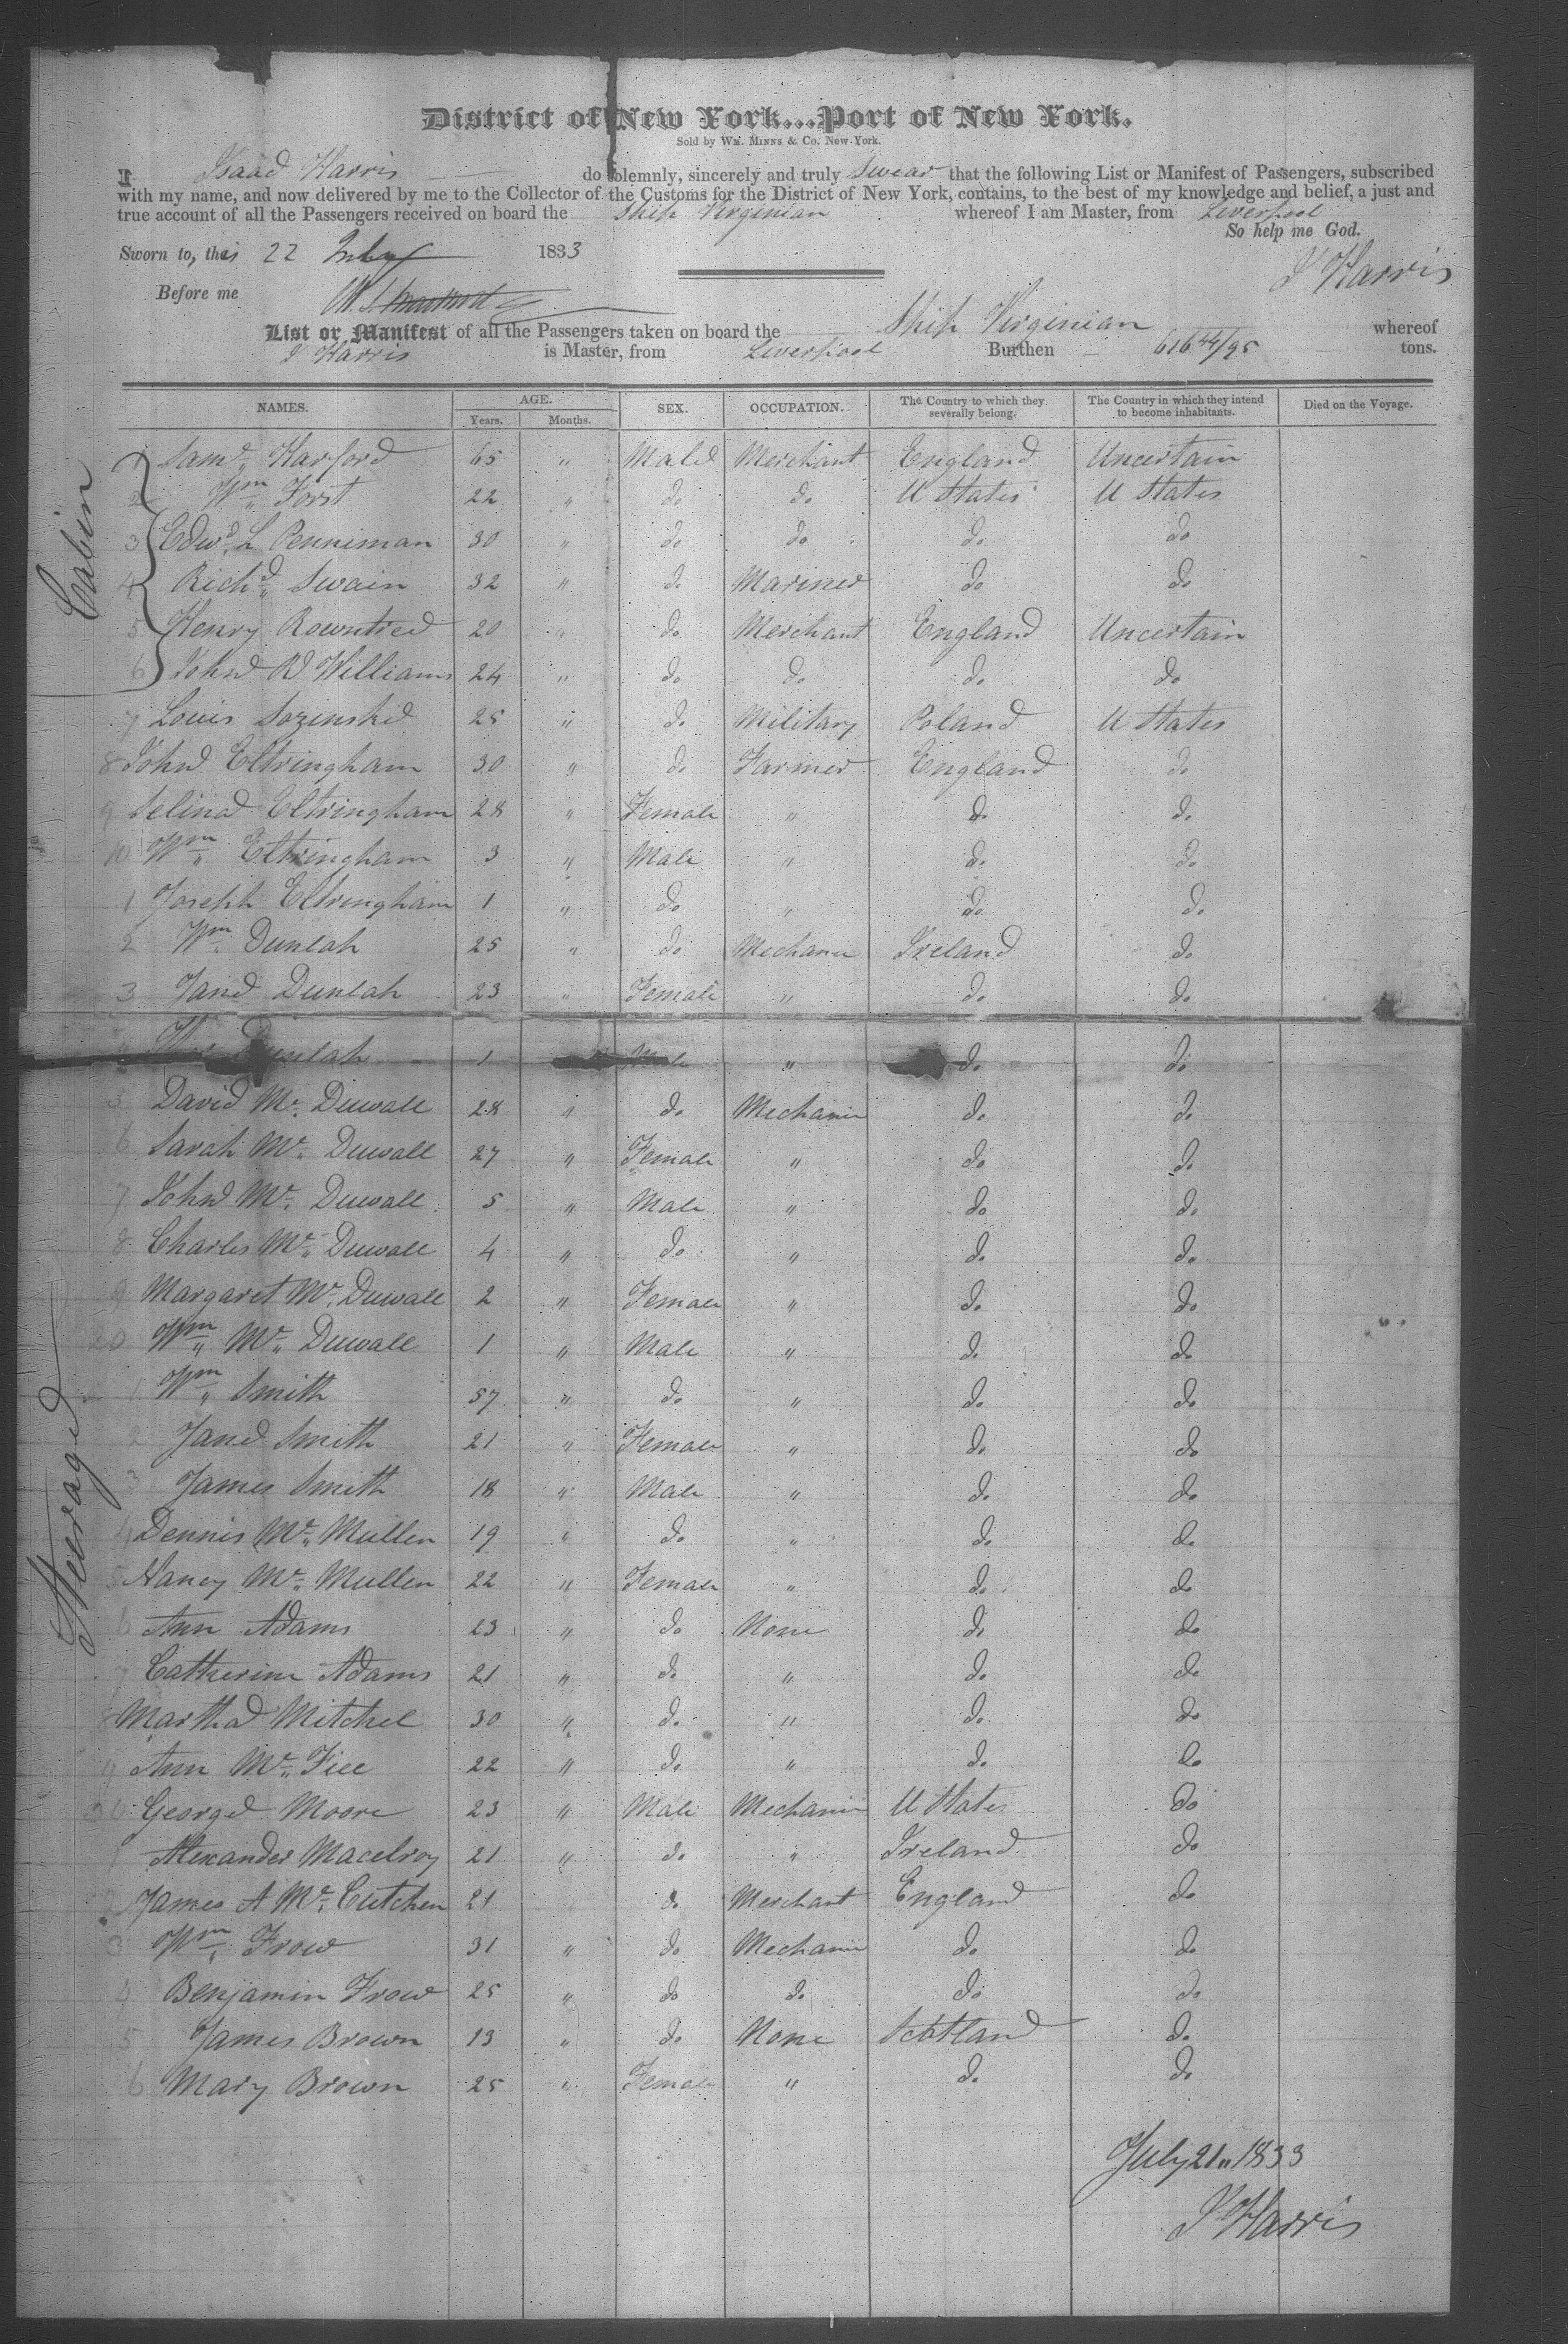 District of New York...Port of New York.
Sold by Wm. Minns & Co. New-York.
I Isaac Harris do solemnly, sincerely and truly Swear that the following List or Manifest of Passengers, subscribed
with my name, and now delivered by me to the Collector of the Customs for the District of New York, contains, to the best of my knowledge and belief, a just and
true account of all the Passengers received on board the Ship Virginian whereof I am Master, from Liverpool
So help me God.
Sworn to, this 22 July 1833
I Harris
Before me
List or Manifest of all the Passengers taken on board the Ship Virginian whereof
I Harris is Master, from Liverpool Burthen 616 44/95 tons.
NAMES. AGE. Years. Months. SEX. OCCUPATION. The Country to which they severally belong. The Country in which they intend to become inhabitants. Died on the Voyage.
Cabin
1 Saml. Harford 65 " Male Merchant England Uncertain
2 Wm. Forst 22 " do do U States U States
3 Edwd. L Penniman 30 " do do do do
4 Richd. Swain 32 " do Mariner do do
5 Henry Rowntree 20 " do Merchant England Uncertain
6 John W Williams 24 " do do do do
7 Louis Sozinskie 25 " do Military Poland U States
8 John Eltringham 30 " do Farmer England do
9 Selina Eltringham 28 " Female " do do
10 Wm. Eltringham 3 " Male " do do
1 Joseph Eltringham 1 " do " do do
2 Wm. Dunlap 25 " do Mechanic Ireland do
3 Jane Dunlap 23 " Female " do do
4 Dunlap 1 Male " do do
5 David Mc. Duwall 28 " do Mechanic do do
6 Sarah Mc. Duwall 27 " Female " do do
7 John Mc. Duwall 5 " Male " do do
8 Charles Mc. Duwall 4 " do " do do
9 Margaret Mc. Duwall 2 " Female " do do
20 Wm. Mc. Duwall 1 " Male " do do
Steerage
1 Wm. Smith 57 " do " do do
2 Jane Smith 21 " Female " do do
3 James Smith 18 " Male " do do
4 Dennis Mc. Mullen 19 " do " do do
5 Nancy Mc. Mullen 22 " Female " do do
6 Ann Adams 23 " do None do do
7 Catherine Adams 21 " do " do do
8 Martha Mitchel 30 " do " do do
9 Ann Mc. Fiee 22 " do " do do
30 George Moore 23 " Male Mechanic U States do
1 Alexander Macelroy 21 " do " Ireland do
2 James A Mc. Cutchen 21 do Merchant England do
3 Wm. Frow 31 " do Mechanic do do
4 Benjamin Frow 25 " do do do do
5 James Brown 13 " do None Scotland do
6 Mary Brown 25 " Female " do do
July 21 1833
I Harris